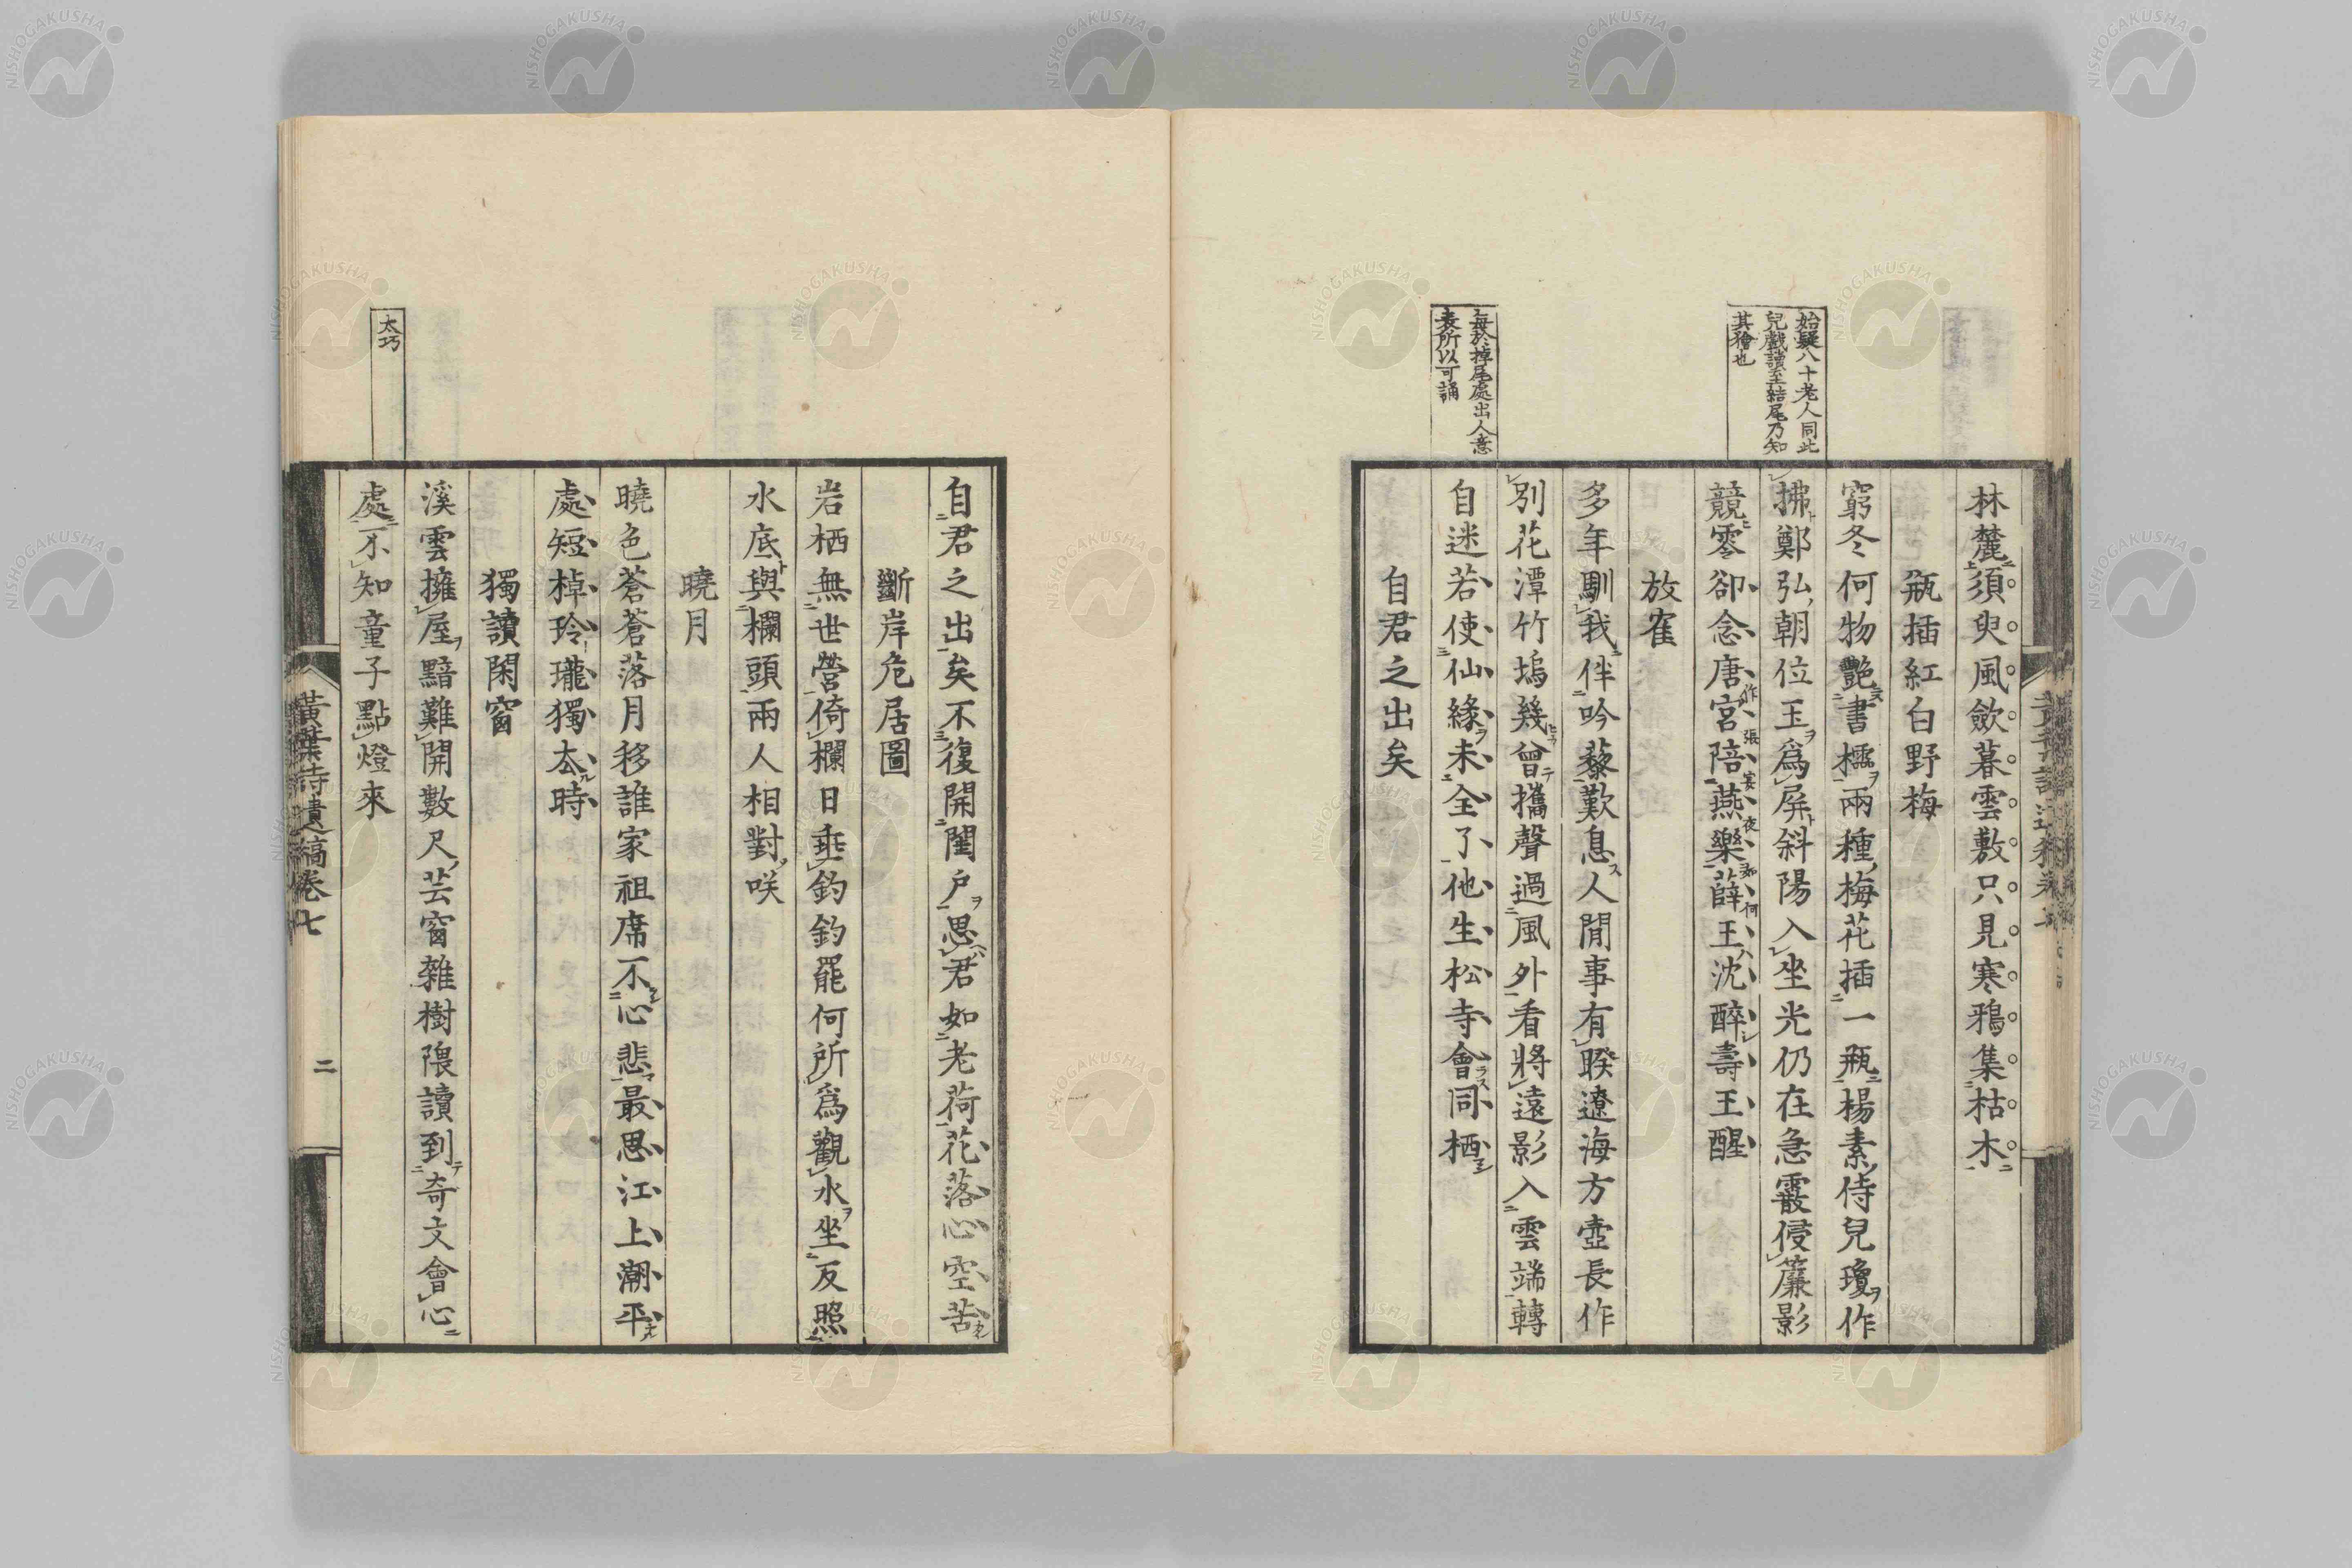 始疑八十老人同此
兒戲讀至結尾乃知
其獪也
每於掉尾處出人意
表所以可誦
林麓須臾風歛暮雲敷只見寒鴉集枯木
瓶插紅白野梅
窮冬何物艷書櫺兩種梅花插一瓶楊素侍兒瓊作
拂鄭弘朝位玉爲屏斜陽入坐光仍在急霰侵簾影
競零卻念唐宮陪燕樂薛王沈醉壽王醒
作張宴夜如何
放隺
多年馴我伴吟藜歎息人間事有暌遼海方壺長作
別花潭竹塢幾曾攜聲過風外看將遠影入雲端轉
自迷若使仙緣未全了他生松寺會同栖
自君之出矣
自君之出矣不復開閨戶思君如老荷花落心空苦
斷岸危居圖
岩栖無世營倚欄日垂釣釣罷何所爲觀水坐反照
水底與欄頭兩人相對咲
曉月
曉色蒼蒼落月移誰家祖席不心悲最思江上潮平
處短棹玲瓏獨厺時
獨讀閑窗
太巧
溪雲擁屋黯難開數尺芸窗雜樹隈讀到奇文會心
處不知童子點燈來
黃葉詩遺稿卷七
二
NISHOGAKUSHA